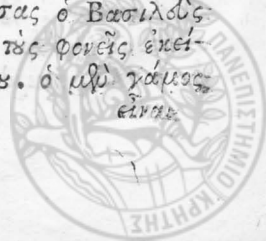 σας ὁ Βασιλεὺς
τοὺς φονεῖς ἐκεί-
ου. ὁ μὲν γάμος
εἶναι
ΠΑΝΕΠΙΣΤΗΜΙΟ ΚΡΗΤΗΣ